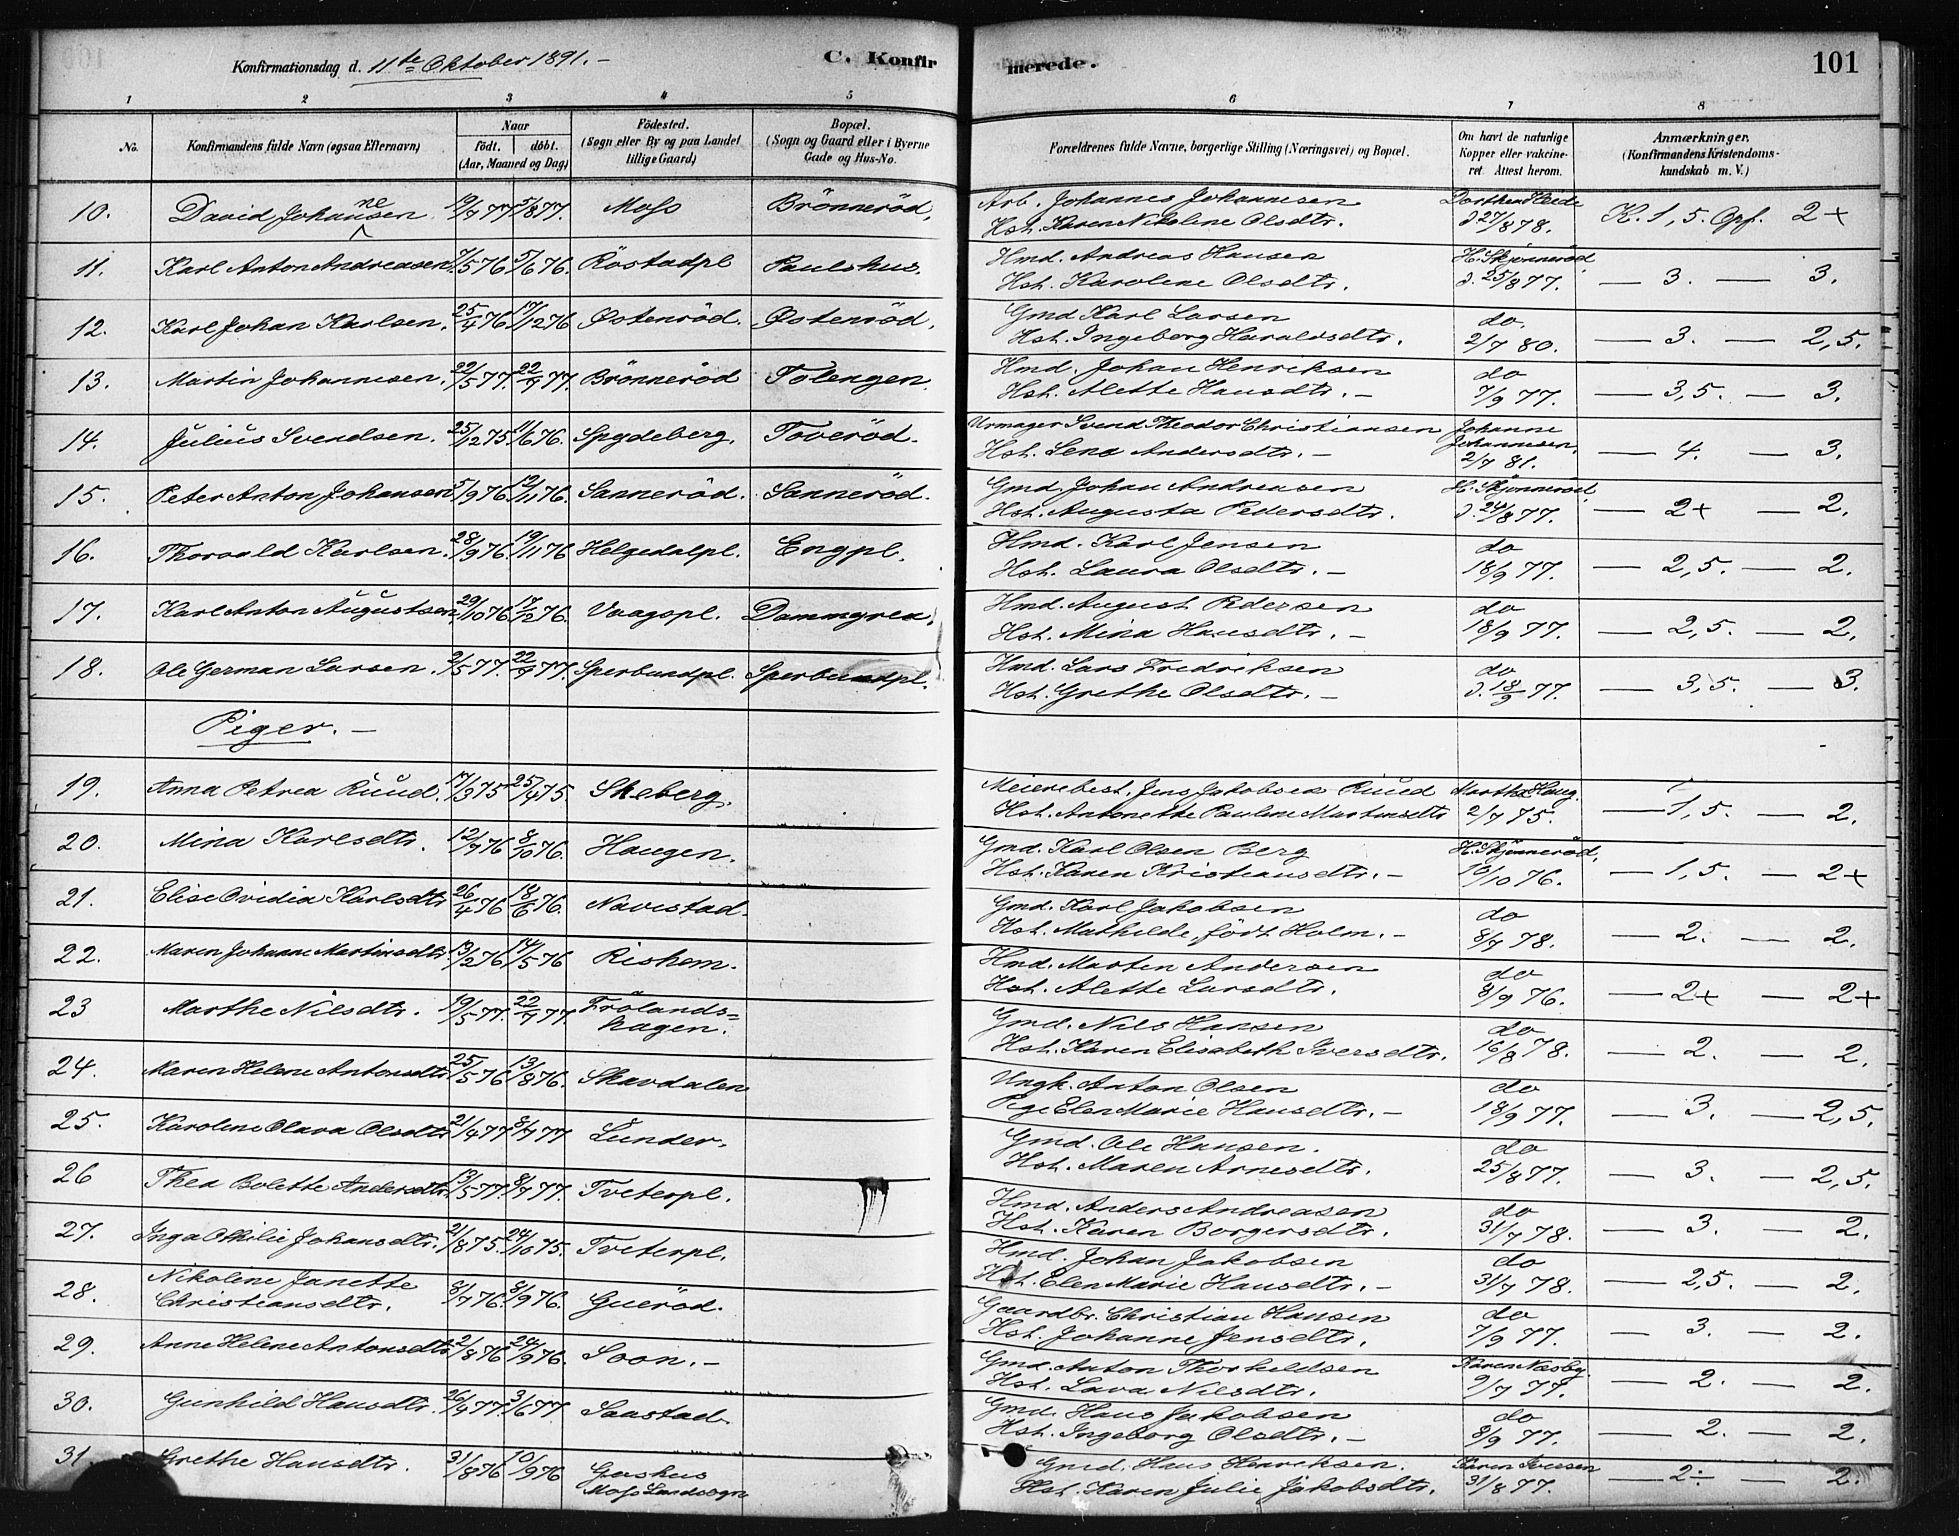 Konfirmationsdag d. 11te Oktober 1891. –
C. Konfirmerede.
101
1 2 3 4 5 6 7 8
No.
Konfirmandens fulde Navn (ogsaa Efternavn)
Naar
født. døbt.
(Aar, Maaned og Dag)
Fødested.
(Sogn eller By og paa Landet tillige Gaard)
Bopæl.
(Sogn og Gaard eller i Byerne Gade og Hus-No.
Forældrenes fulde Navne, borgerlige Stilling (Næringsvei) og Bopæl.
Om havt de naturlige Kopper eller vakcineret. Attest herom.
Anmærkninger.
(Konfirmandens Kristendomskundskab m. V.)
10. David Johannesen 19/7 77 5/8 77. Moss Brönneröd, Arb. Johannes Johannesen Hst. Karen Nikoline Olsdtr. Dorthea Heide d. 27/8 78. K. 1,5. Opf. 2+
11. Karl Anton Andreasen 7/5 76 5/6 76. Röstadpl Paulshus. Hmd. Andreas Hansen Hst. Karoline Olsdtr. H. Skjønnerød d. 25/8 77. — 3. — 3.
12. Karl Johan Karlsen. 25/4 76 17/12 76 Østenröd. Østenröd. Gmd Karl Larsen Hst. Ingeborg Haraldsdtr. do. 2/7 80. — 3. — 2,5.
13. Martin Johannesen. 22/5 77. 22/7 77. Brönneröd Tolengen. Hmd. Johan Henriksen Hst. Alette Hansdtr. – do 7/9 77. — 3,5. — 3.
14. Julius Svendsen. 25/12 75. 11/6 76. Spydeberg. Toveröd. Urmager Svend Theodor Christiansen Hst. Lena Andersdtr. – Johanne Johannesen. 2/7 81. — 4. — 3.
15. Peter Anton Johansen 5/9 76 12/11 76. Sanneröd. Sanneröd. Gmd. Johan Andreasen Hst. Augusta Pedersdtr. H. Skjønnerød d. 24/8 77. — 2+ — 2.
16. Thorvald Karlsen. 28/9 76. 19/11 76 Helgedalpl. Engpl. Hmd. Karl Jensen Hst. Laura Olsdtr. – do 18/9 77. — 2,5. — 2.
17. Karl Anton Augustsen 29/10 76 17/12 76. Vaagspl. Dammyrea. Hmd. August Pedersen Hst. Mina Hansdtr. – do 18/9 77. — 2,5. — 2.
18. Ole German Larsen. 2/5 77. 22/7 77. Sperbundpl. Sperbundpl. Hmd. Lars Fredriksen Hst. Grethe Olsdtr. – do d. 18/9 77. — 3,5. — 3.
Piger. –
19. Anna Petrea Ruud. 17/3 75 25/4 75. Skeberg. Meierebest. Jens Jakobsen Ruud Hst. Antonette Pauline Martinsdtr Marthe Haug. 2/7 75. — 1,5. — 2.
20. Mina Karlsdtr. 12/7 76 8/10 76. Haugen. Gmd. Karl Olsen Berg Hst. Karen Kristiansdtr. – H. Skjønnerød, 10/10 76. — 1,5. — 2+
21. Elise Ovidia Karlsdtr 26/4 76 18/6 76. Navestad. Gmd. Karl Jakobsen Hst. Mathilde, født Holm. – do 8/7 78. — 2. — 2.
22. Maren Johanne Martinsdtr. 13/2 76. 14/5 76 Rishem. Hmd. Morten Andersen Hst. Alette Larsdtr. do 8/9 76. — 2+ — 2+
23 Marthe Nilsdtr. 19/5 77. 22/7 77. Frölands=hagen. Gmd. Nils Hansen Hst. Karen Elisabeth Iversdtr. do 16/8 78. — 2. — 2.
24. Maren Helene Antonsdtr 25/5 76 13/8 76. Skavdalen Ungk. Anton Olsen Pge Elen Marie Hansdtr. – do 18/9 77. — 3. — 2,5.
25. Karoline Olava Olsdtr 21/4 77 8/7 77 Lunder. Gmd. Ole Hansen. Hst. Maren Arnesdtr. do 25/8 77. — 3. — 2,5.
26 Thea Bolette Andersdtr 13/5 77. 8/7 77. Tveterpl. Hmd. Anders Andreasen Hst. Karen Borgersdtr. do 31/7 78. — 3. — 2.
27. Inga Othilie Johansdtr. 21/8 75. 24/10 75. Tveterpl. Hmd. Johan Jakobsen Hst. Elen Marie Hansdtr. – do 31/7 78. — 2,5. — 2.
28. Nikoline Janette Christiansdtr. 8/7 76. 8/9 76. Gueröd. Gaardbr. Christian Hansen Hst. Johanne Jensdtr. do 7/9 77. — 3. — 2.
29. Anne Helene Antonsdtr 2/8 76 24/9 76. Soon. – Gmd Anton Thorkildsen Hst. Lava Nilsdtr. Karen Næsby. 9/7 77. — 2. — 2.
30. Gunhild Hansdtr. 26/4 77. 3/6 77 Saastad. Gmd. Hans Jakobsen Hst. Ingeborg Olsdtr. – do 8/9 77. — 2. — 2.
31. Grethe Hansdtr. 31/8 76 10/9 76 Gashus Moss Landsogn Gmd. Hans Henriksen. Hst. Karen Julie Jakobsdtr. Karen Iversen 31/8 77. — 2÷ — 2.